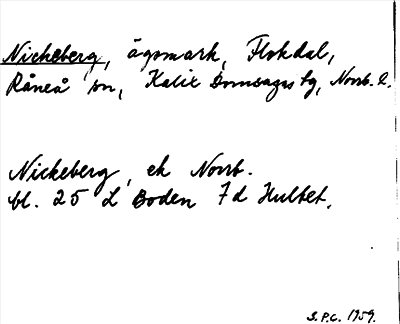 Nickeberg, ägomark, Flokdal,
Råneå sn, Kalix Domsagas tg, Norrb. l.
Nickeberg, ek Norrb.
bl. 25 L Boden 7d Hulbet.
S.P.C. 1959.